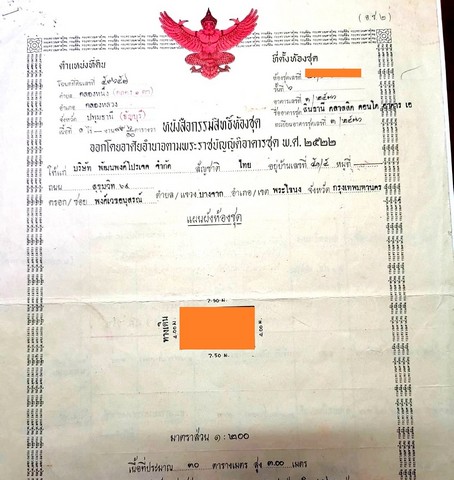 (อ.ช.๒)
ตำแหน่งที่ดิน
ที่ตั้งห้องชุด
โฉนดที่ดินเลขที่
ห้องชุดเลขที่
ตำบล คลองหนึ่ง
ชั้นที่ ๖
อำเภอ คลองหลวง
อาคารเลขที่
จังหวัด ปทุมธานี (ธัญบุรี)
ชื่ออาคารชุด
เนื้อที่ ๑ ไร่ — งาน ตารางวา
ทะเบียนอาคารชุดเลขที่
หนังสือกรรมสิทธิ์ห้องชุด
ออกโดยอาศัยอำนาจตามพระราชบัญญัติอาคารชุด พ.ศ. ๒๕๒๒
ให้แก่ บริษัท พัฒนพงศ์โปรเจค จำกัด สัญชาติ ไทย อยู่บ้านเลขที่ ๕๑/๕ หมู่ที่ —
ถนน สุขุมวิท ๖๔ ตำบล/แขวง บางจาก อำเภอ/เขต พระโขนง จังหวัด กรุงเทพมหานคร
ตรอก/ซอย พงศ์เวชอนุสรณ์
แผนผังห้องชุด
7.50 ม.
ทางเดิน
4.00 ม.
4.00 ม.
7.50 ม.
มาตราส่วน ๑ : ๒๐๐
เนื้อที่ประมาณ ๓๐ ตารางเมตร สูง ๓.๐๐ เมตร